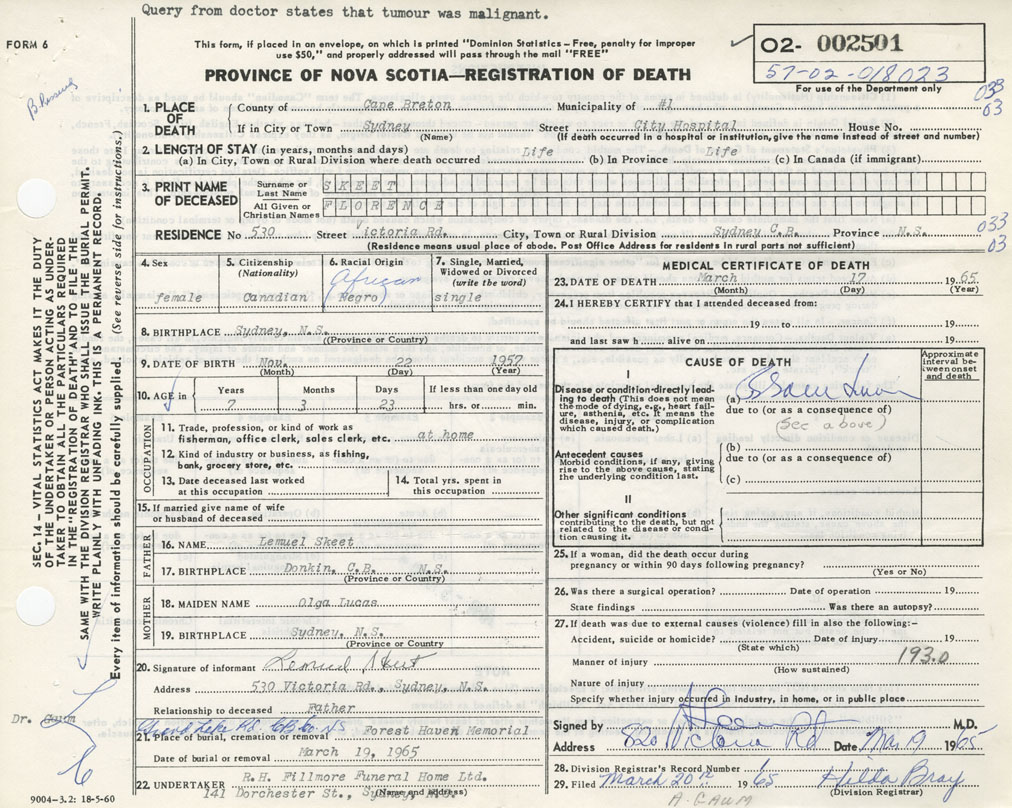 Query from doctor states that tumour was malignant.
FORM 6
This form, if placed in an envelope, on which is printed "Dominion Statistics – Free, penalty for improper
use $50," and properly addressed will pass through the mail "FREE"
O2- 002501
57-02-018023
For use of the Department only
PROVINCE OF NOVA SCOTIA—REGISTRATION OF DEATH
033
63
1. PLACE OF DEATH
County of Cape Breton Municipality of #1
If in City or Town Sydney Street City Hospital House No.
(Name) (If death occurred in a hospital or institution, give the name instead of street and number)
2. LENGTH OF STAY (in years, months and days)
(a) In City, Town or Rural Division where death occurred Life (b) In Province Life (c) In Canada (if immigrant)
3. PRINT NAME OF DECEASED
Surname or Last Name SKEET
All Given or Christian Names FLORENCE
RESIDENCE No 530 Street Victoria Rd. City, Town or Rural Division Sydney C.B. Province N.S.
(Residence means usual place of abode. Post Office Address for residents in rural parts not sufficient)
033
03
4. Sex
female
5. Citizenship
(Nationality)
Canadian
6. Racial Origin
African
(Negro)
7. Single, Married,
Widowed or Divorced
(write the word)
single
8. BIRTHPLACE Sydney, N.S.
(Province or Country)
9. DATE OF BIRTH Nov. 22 1957
(Month) (Day) (Year)
10. AGE in
Years Months Days If less than one day old
7 3 23 hrs. or min.
OCCUPATION
11. Trade, profession, or kind of work as
fisherman, office clerk, sales clerk, etc. at home
12. Kind of industry or business, as fishing,
bank, grocery store, etc.
13. Date deceased last worked
at this occupation
14. Total yrs. spent in
this occupation
15. If married give name of wife
or husband of deceased
FATHER
16. NAME Lemuel Skeet
17. BIRTHPLACE Donkin, C.B. N.S.
(Province or Country)
MOTHER
18. MAIDEN NAME Olga Lucas
19. BIRTHPLACE Sydney, N.S.
(Province or Country
20. Signature of informant Lemuel Skeet
Address 530 Victoria Rd., Sydney, N.S.
Relationship to deceased Father
Grand Lake Rd. C.B. Co. NS
21. Place of burial, cremation or removal Forest Haven Memorial
Date of burial or removal March 19, 1965
22. UNDERTAKER R.H. Fillmore Funeral Home Ltd.
141 Dorchester St., Sydney, N.S.
(Name and address)
MEDICAL CERTIFICATE OF DEATH
23. DATE OF DEATH March 17 1965
(Month) (Day) (Year)
24. I HEREBY CERTIFY that I attended deceased from:
19 to 19
and last saw h alive on 19
CAUSE OF DEATH
Approximate
interval be-
tween onset
and death
I
Disease or condition directly lead-
ing to death (This does not
mean the mode of dying, e.g., heart fail-
ure, asthenia, etc. It means the
disease, injury, or complication
which caused death.)
(a)
due to (or as a consequence of)
(see above)
Antecedent causes
Morbid conditions, if any, giving
rise to the above cause, stating
the underlying condition last.
(b)
due to (or as a consequence of)
(c)
II
Other significant conditions
contributing to the death, but not
related to the disease or condi-
tion causing it.
25. If a woman, did the death occur during
pregnancy or within 90 days following pregnancy?
(Yes or No)
26. Was there a surgical operation? Date of operation 19
State findings Was there an autopsy?
27. If death was due to external causes (violence) fill in also the following:–
Accident, suicide or homicide? Date of injury 19
(State which)
193.0
Manner of injury
(How sustained)
Nature of injury
Specify whether injury occurred in Industry, in home, or in public place
Signed by M.D.
Address 820 Victoria Rd Date Mar 19 1965
28. Division Registrar's Record Number
29. Filed March 20th 1965 Hilda Bray
(Division Registrar)
A. GAUM
SEC. 14 – VITAL STATISTICS ACT MAKES IT THE DUTY
OF THE UNDERTAKER OR PERSON ACTING AS UNDER-
TAKER TO OBTAIN ALL THE PARTICULARS REQUIRED
IN THE "REGISTRATION OF DEATH" AND TO FILE THE
SAME WITH THE DIVISION REGISTRAR WHO SHALL ISSUE THE BURIAL PERMIT.
WRITE PLAINLY WITH UNFADING INK. THIS IS A PERMANENT RECORD.
Every item of information should be carefully supplied. (See reverse side for instructions.)
Dr. Gaum
9004-3.2: 18-5-60